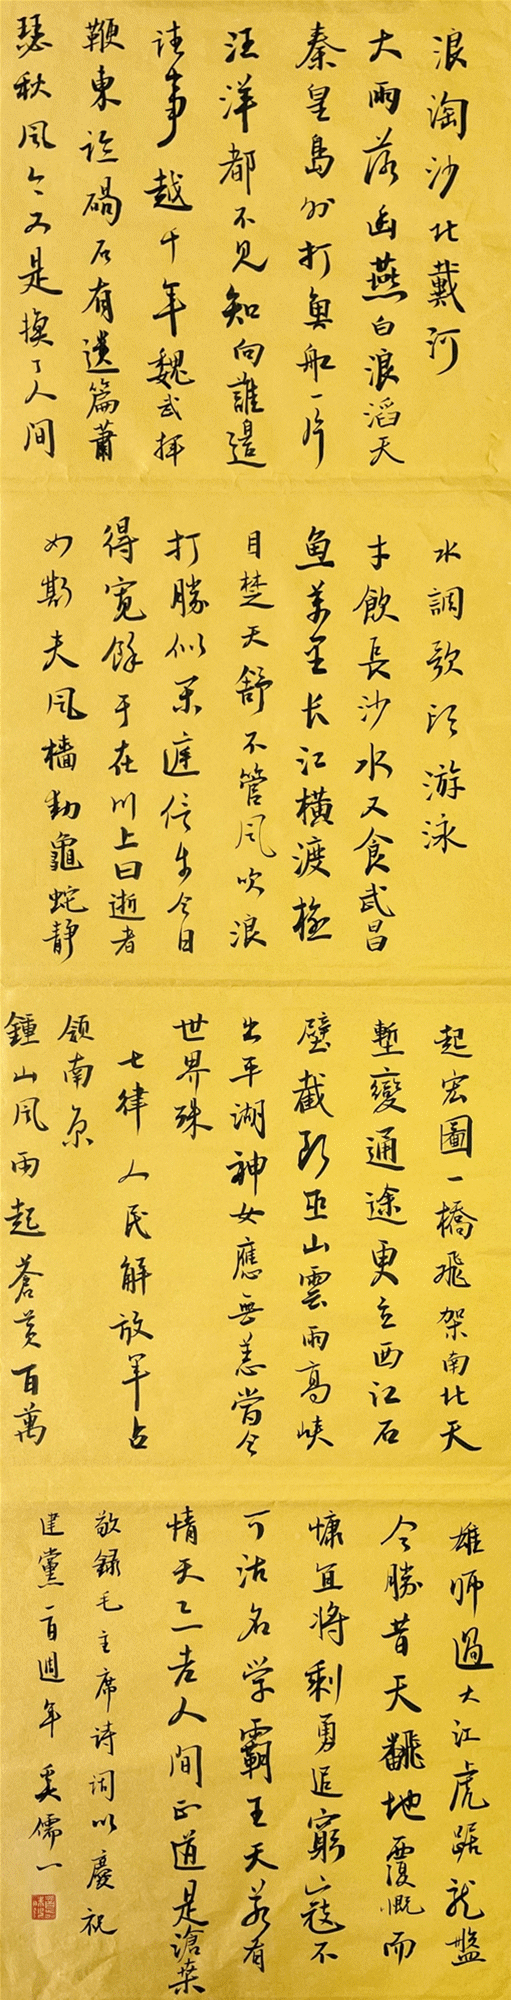 浪淘沙北戴河
大雨落幽燕白浪滔天
秦皇島外打魚船一片
汪洋都不見知向誰邊
往事越千年魏武揮
鞭東臨碣石有遺篇蕭
瑟秋風今又是換了人间
水調歌頭游泳
才飲長沙水又食武昌
鱼萬里长江橫渡極
目楚天舒不管風吹浪
打勝似閒庭信步今日
得寬餘子在川上曰逝者
如斯夫風檣動龜蛇静
起宏圖一橋飛架南北天
塹變通途更立西江石
壁截断巫山雲雨高峡
出平湖神女應無恙當今
世界殊
七律人民解放军占
领南京
鍾山風雨起蒼黄百萬
雄師過大江虎踞龙盤
今勝昔天翻地覆慨而
慷宜将剩勇追窮寇不
可沽名学霸王天若有
情天亦老人间正道是滄桑
敬録毛主席诗词以慶祝
建黨一百週年 奚儒一